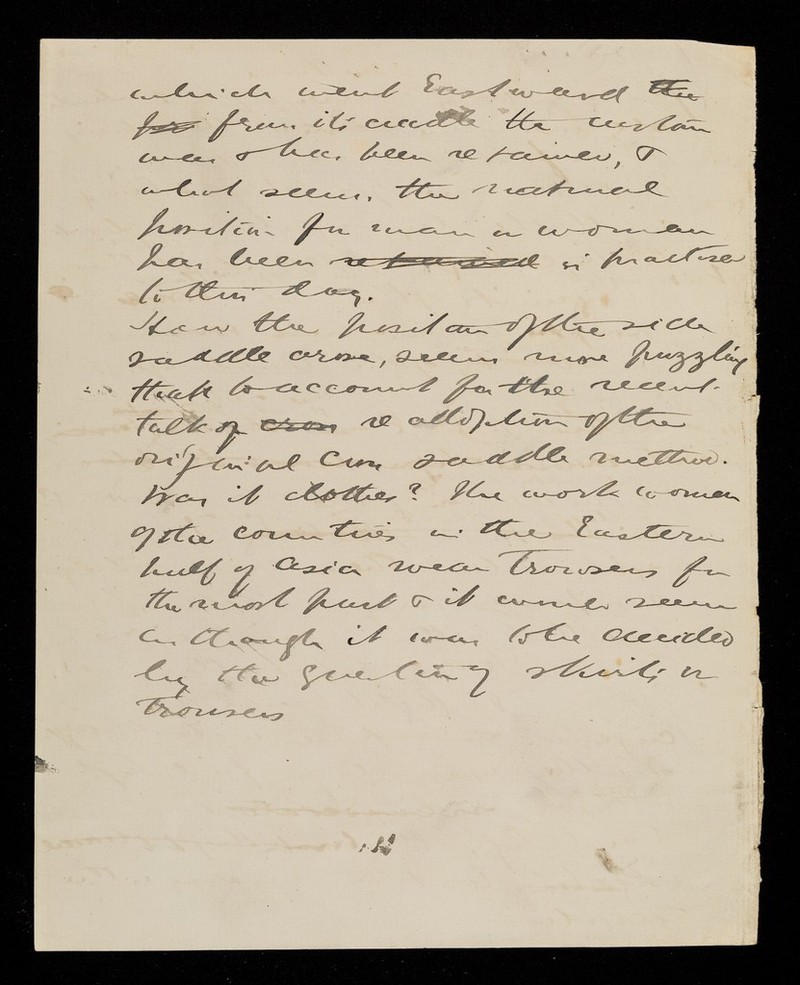 which went Eastward the
for from its cradle the custom
was & has been retained, &
what seems the natural
position for man or woman
has been retained in practise
to this day.
How the position of the side
saddle arose, seems more puzzling
than to account for the recent
talk of re adoption of the
original saddle method.
Was it clothes? The work women
of the countries in the Eastern
half of Asia wear Trowsers for
the most part & it would seem
as though it was to be decided
by the question of skirts or
Trousers